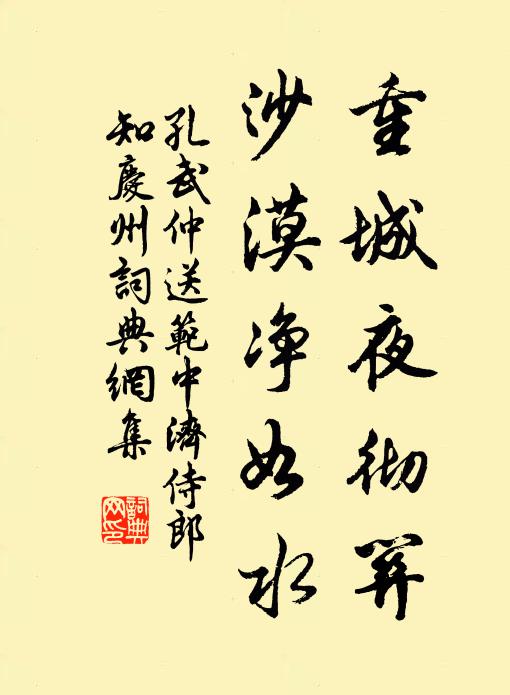 重城夜彻関
沙漠净如水
孔武仲送範中濟侍郎
知慶州詞典網集
詞典网印